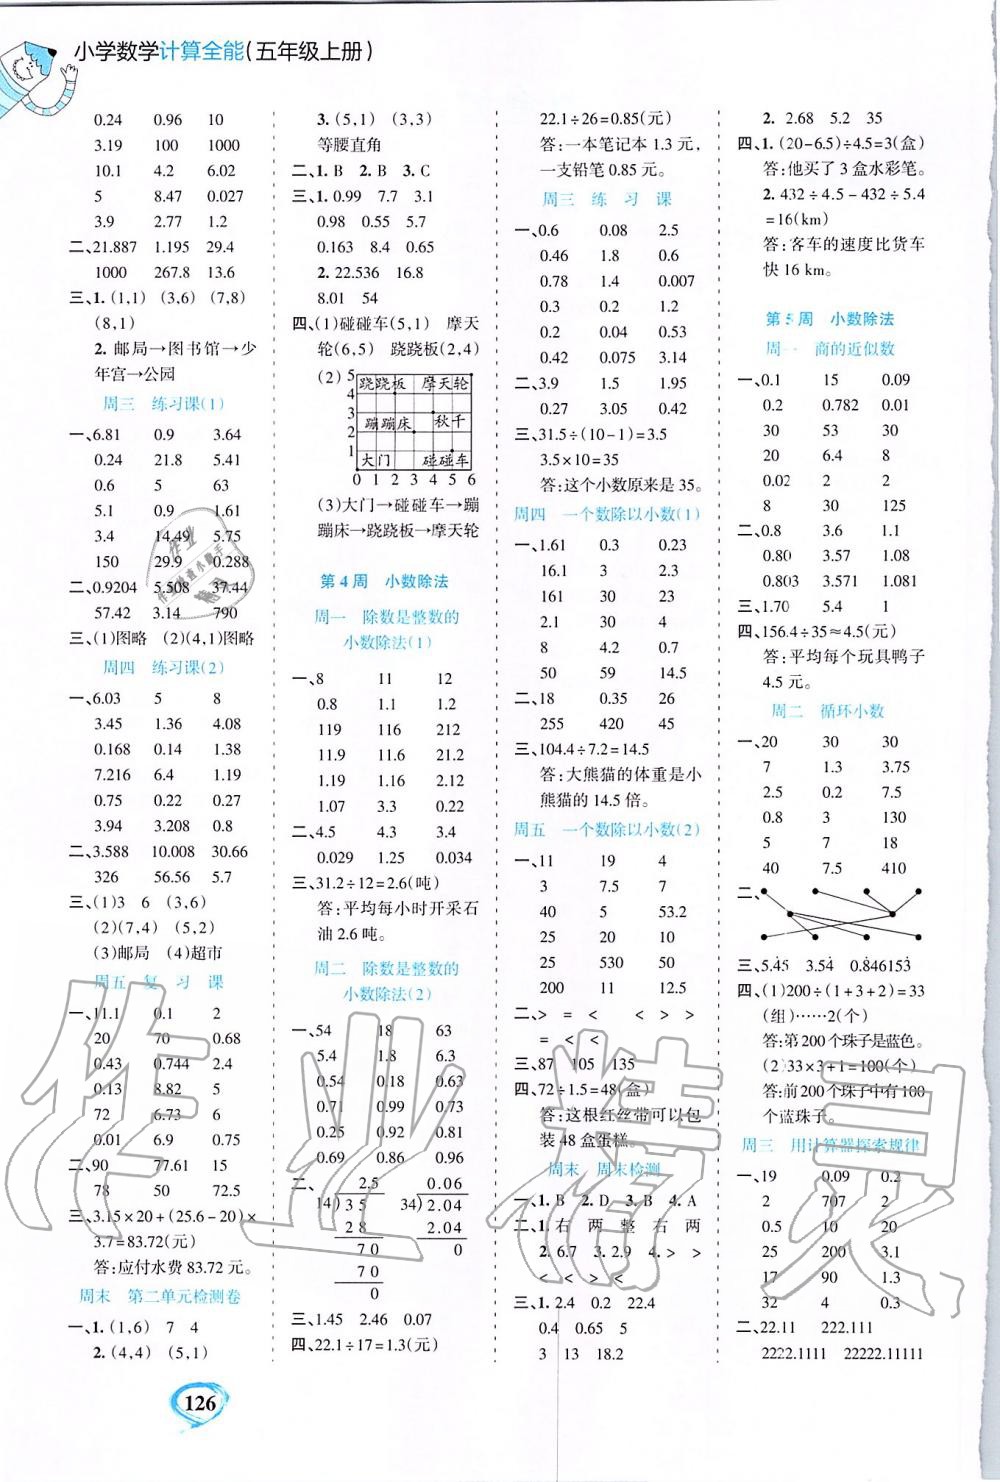 小学数学计算全能(五年级上册)
0.24 0.96 10
3.19 100 1000
10.1 4.2 6.02
5 8.47 0.027
3.9 2.77 1.2
二、21.887 1.195 29.4
1000 267.8 13.6
三、1. (1,1) (3,6) (7,8)
(8,1)
2. 邮局→图书馆→少
年宫→公园
周三 练习课(1)
一、6.81 0.9 3.64
0.24 21.8 5.41
0.6 5 63
5.1 0.9 1.61
3.4 14.49 5.75
150 29.9 0.288
二、0.9204 5.508 37.44
57.42 3.14 790
三、(1)图略 (2)(4,1)图略
周四 练习课(2)
一、6.03 5 8
3.45 1.36 4.08
0.168 0.14 1.38
7.216 6.4 1.19
0.75 0.22 0.27
3.94 3.208 0.8
二、3.588 10.008 30.66
326 56.56 5.7
三、(1)3 6 (3,6)
(2)(7,4) (5,2)
(3)邮局 (4)超市
周五 复 习 课
一、11.1 0.1 2
20 70 0.68
0.43 0.744 2.4
0.13 8.82 5
72 6.73 6
0.01 6.9 0.75
二、90 77.61 15
78 50 72.5
三、3.15×20+(25.6-20)×
3.7=83.72(元)
答:应付水费 83.72 元。
周末 第二单元检测卷
一、1. (1,6) 7 4
2. (4,4) (5,1)
3. (5,1) (3,3)
等腰直角
二、1. B 2. B 3. C
三、1. 0.99 7.7 3.1
0.98 0.55 5.7
0.163 8.4 0.65
2. 22.536 16.8
8.01 54
四、(1)碰碰车(5,1) 摩天
轮(6,5) 跷跷板(2,4)
(2) 5 跷跷板 摩天轮
4
3 蹦蹦床 秋千
2
1 大门 碰碰车
0 1 2 3 4 5 6
(3)大门→碰碰车→蹦
蹦床→跷跷板→摩天轮
第 4 周 小数除法
周一 除数是整数的
小数除法(1)
一、8 11 12
0.8 1.1 1.2
119 116 212
11.9 11.6 21.2
1.19 1.16 2.12
1.07 3.3 0.22
二、4.5 4.3 3.4
0.029 1.25 0.034
三、31.2÷12=2.6(吨)
答:平均每小时开采石
油 2.6 吨。
周二 除数是整数的
小数除法(2)
一、54 18 63
5.4 1.8 6.3
0.54 0.18 0.63
0.71 0.99 0.74
0.25 0.92 0.81
0.69 0.86 0.96
二、 2.5 0.06
14)35 34)2.04
28 2.04
70 0
70
0
三、1.45 2.46 0.07
四、22.1÷17=1.3(元)
22.1÷26=0.85(元)
答:一本笔记本 1.3 元,
一支铅笔 0.85 元。
周三 练 习 课
一、0.6 0.08 2.5
0.46 1.8 0.6
0.78 1.4 0.007
0.3 0.2 1.2
0.2 0.04 0.53
0.42 0.075 3.14
二、3.9 1.5 1.95
0.27 3.05 0.42
三、31.5÷(10-1)=3.5
3.5×10=35
答:这个小数原来是 35。
周四 一个数除以小数(1)
一、1.61 0.3 0.23
16.1 3 2.3
161 30 23
2.1 30 4
8 4.2 0.7
50 59 14.5
二、18 0.35 26
255 420 45
三、104.4÷7.2=14.5
答:大熊猫的体重是小
熊猫的 14.5 倍。
周五 一个数除以小数(2)
一、11 19 4
3 7.5 7
40 5 53.2
25 20 20
25 530 50
200 11 12.5
二、> = < < > >
= < <
三、87 105 135
四、72÷1.5=48(盒)
答:这根红丝带可以包
装 48 盒蛋糕。
周末 周末检测
一、1. B 2. D 3. B 4. A
二、1. 右 两 整 右 两
2. 6.7 3. 2.9 4. > >
< < > <
三、1. 2.4 0.2 22.4
0.4 0.65 5
3 13 18.2
2. 2.68 5.2 35
四、1. (20-6.5)÷4.5=3(盒)
答:他买了 3 盒水彩笔。
2. 432÷4.5-432÷5.4
=16(km)
答:客车的速度比货车
快 16 km。
第 5 周 小数除法
周一 商的近似数
一、0.1 15 0.09
0.2 0.782 0.01
30 53 30
20 6.4 8
0.02 2 2
8 30 125
二、0.8 3.6 1.1
0.80 3.57 1.08
0.803 3.571 1.081
三、1.70 5.4 1
四、156.4÷35≈4.5(元)
答:平均每个玩具鸭子
4.5 元。
周二 循环小数
一、20 30 30
7 1.3 3.75
2.5 0.2 7.5
0.8 3 130
5 7 18
40 7.5 410
二、
三、5.45 3.54 0.846153
四、(1)200÷(1+3+2)=33
(组)……2(个)
答:第 200 个珠子是蓝色。
(2)33×3+1=100(个)
答:前 200 个珠子中有 100
个蓝珠子。
周三 用计算器探索规律
一、19 0.09 0.2
2 707 2
0.5 10 20
25 200 3.1
17 90 1.3
32 4 0.3
二、22.11 222.111
2222.1111 22222.11111
126
作业精灵